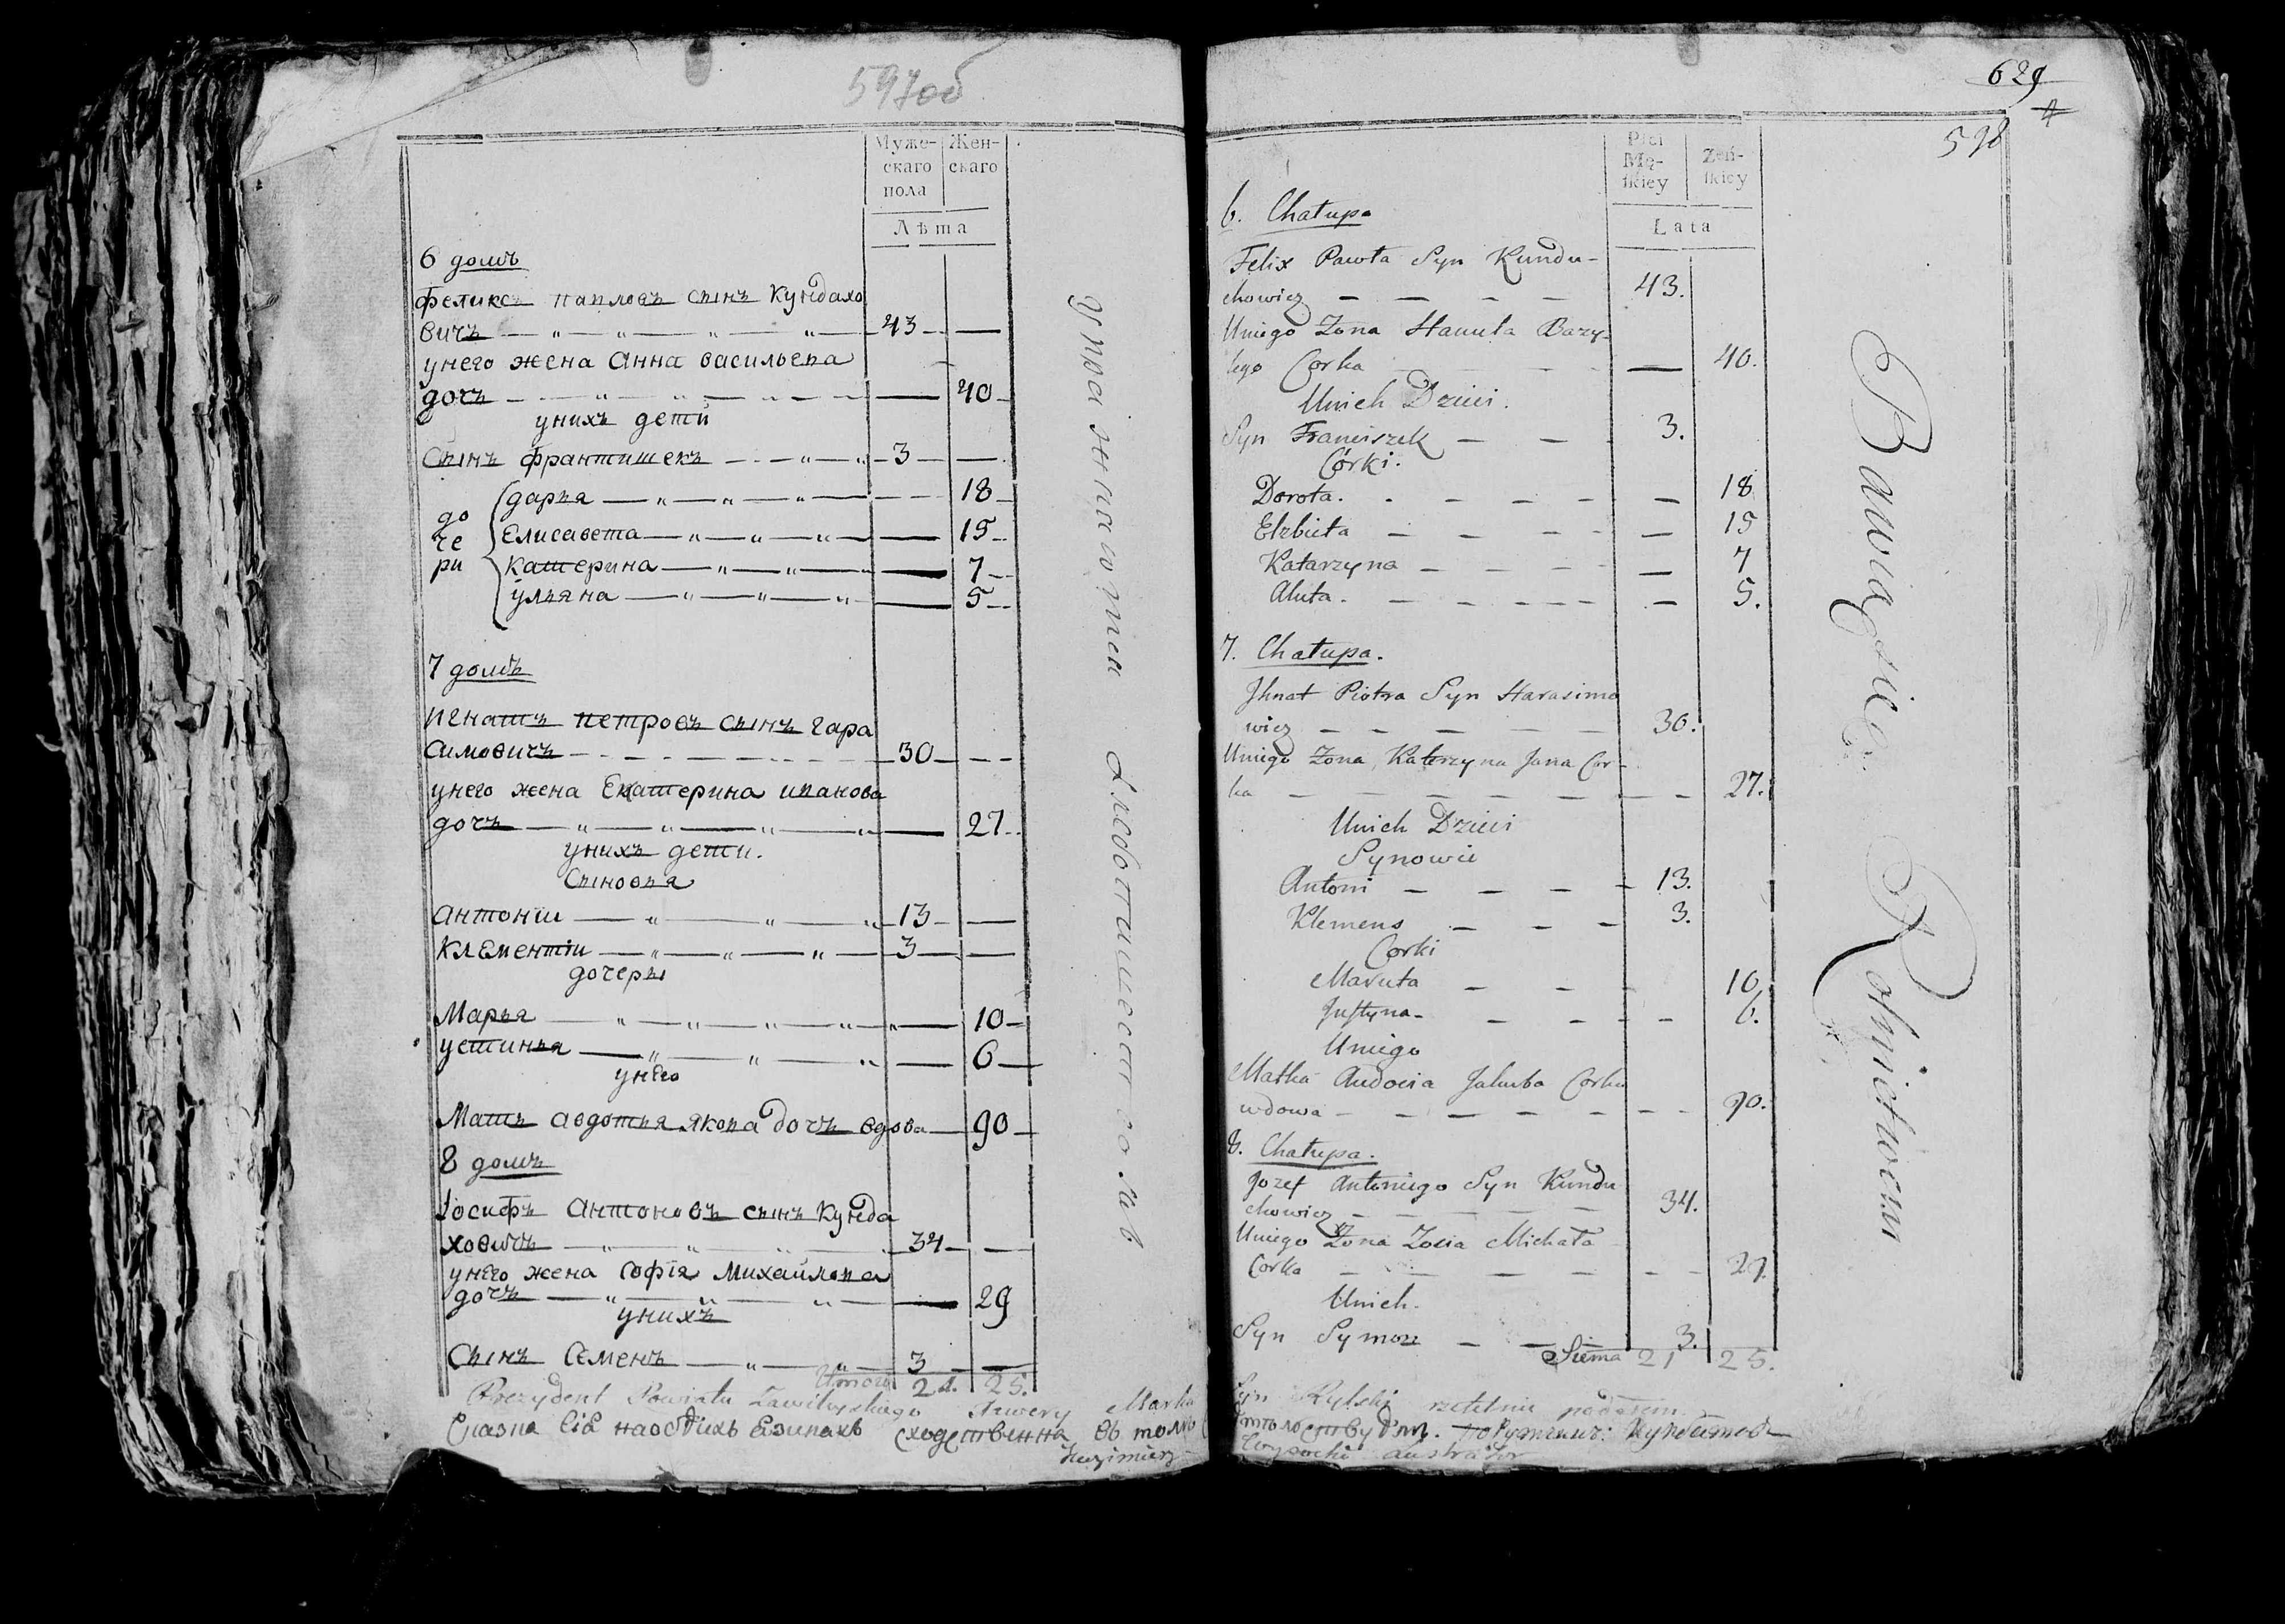 597об
Муже-
скаго
пола
Жен-
скаго
Лѣта
6 домъ
феликсъ павловъ сынъ Кундахо
вичъ 43
унего жена Анна васильева
дочъ 40
унихъ дети
Сынъ франтишекъ 3
до
че
ри
дарья 18
Елисавета 15
Катерина 7
ульяна 5
7 домъ
игнатъ петровъ сынъ гара
симовичъ 30
унего жена Екатерина иванова
дочъ 27
унихъ дети.
Сыновья
антоніи 13
Клементіи 3
дочеры
Марья 10
устинья 6
унего
Мать авдотья якова дочъ вдова 90
8 домъ
Іосифъ антоновъ сынъ Кунда
ховичъ 34
унего жена софія михайлова
дочъ 29
унихъ
Сынъ Семенъ 3
21. 25.
Prezydent Powiatu Zawileyskiego Marka
упражняются хлебопашеством
629
4
598
Płci
Mę-
skiey
Żeń-
skiey
Lata
6. Chałupa
Felix Pawła Syn Kundu-
chowicz 43.
Uniego Zona Hanuta Bazy-
lego Corka 40.
Unich Dzieci.
Syn Franciszek 3.
Córki.
Dorota. 18
Elzbieta 15
Katarzyna 7
Aluta. 5.
7. Chałupa.
Jhnat Piotra Syn Harasimo
wicz 30.
Uniego Zona Katerzyna Jana Cor-
ka 27.
Unich Dzieci
Synowie
Antoni 13.
Klemens 3.
Corki
Maruta 10
Justyna 6.
Uniego
Matka Audocia Jakuba Corka
wdowa 90.
8. Chałupa.
Jozef Antoniego Syn Kundu
chowicz 34.
Uniego Zona Zosia Michała
Corka 29.
Unich.
Syn Symon 3.
Suma 21 25.
Syn Rylski rzetelnie podałem
Kazimierz Wysocki Lustrator
Bawią się Rolnictwem